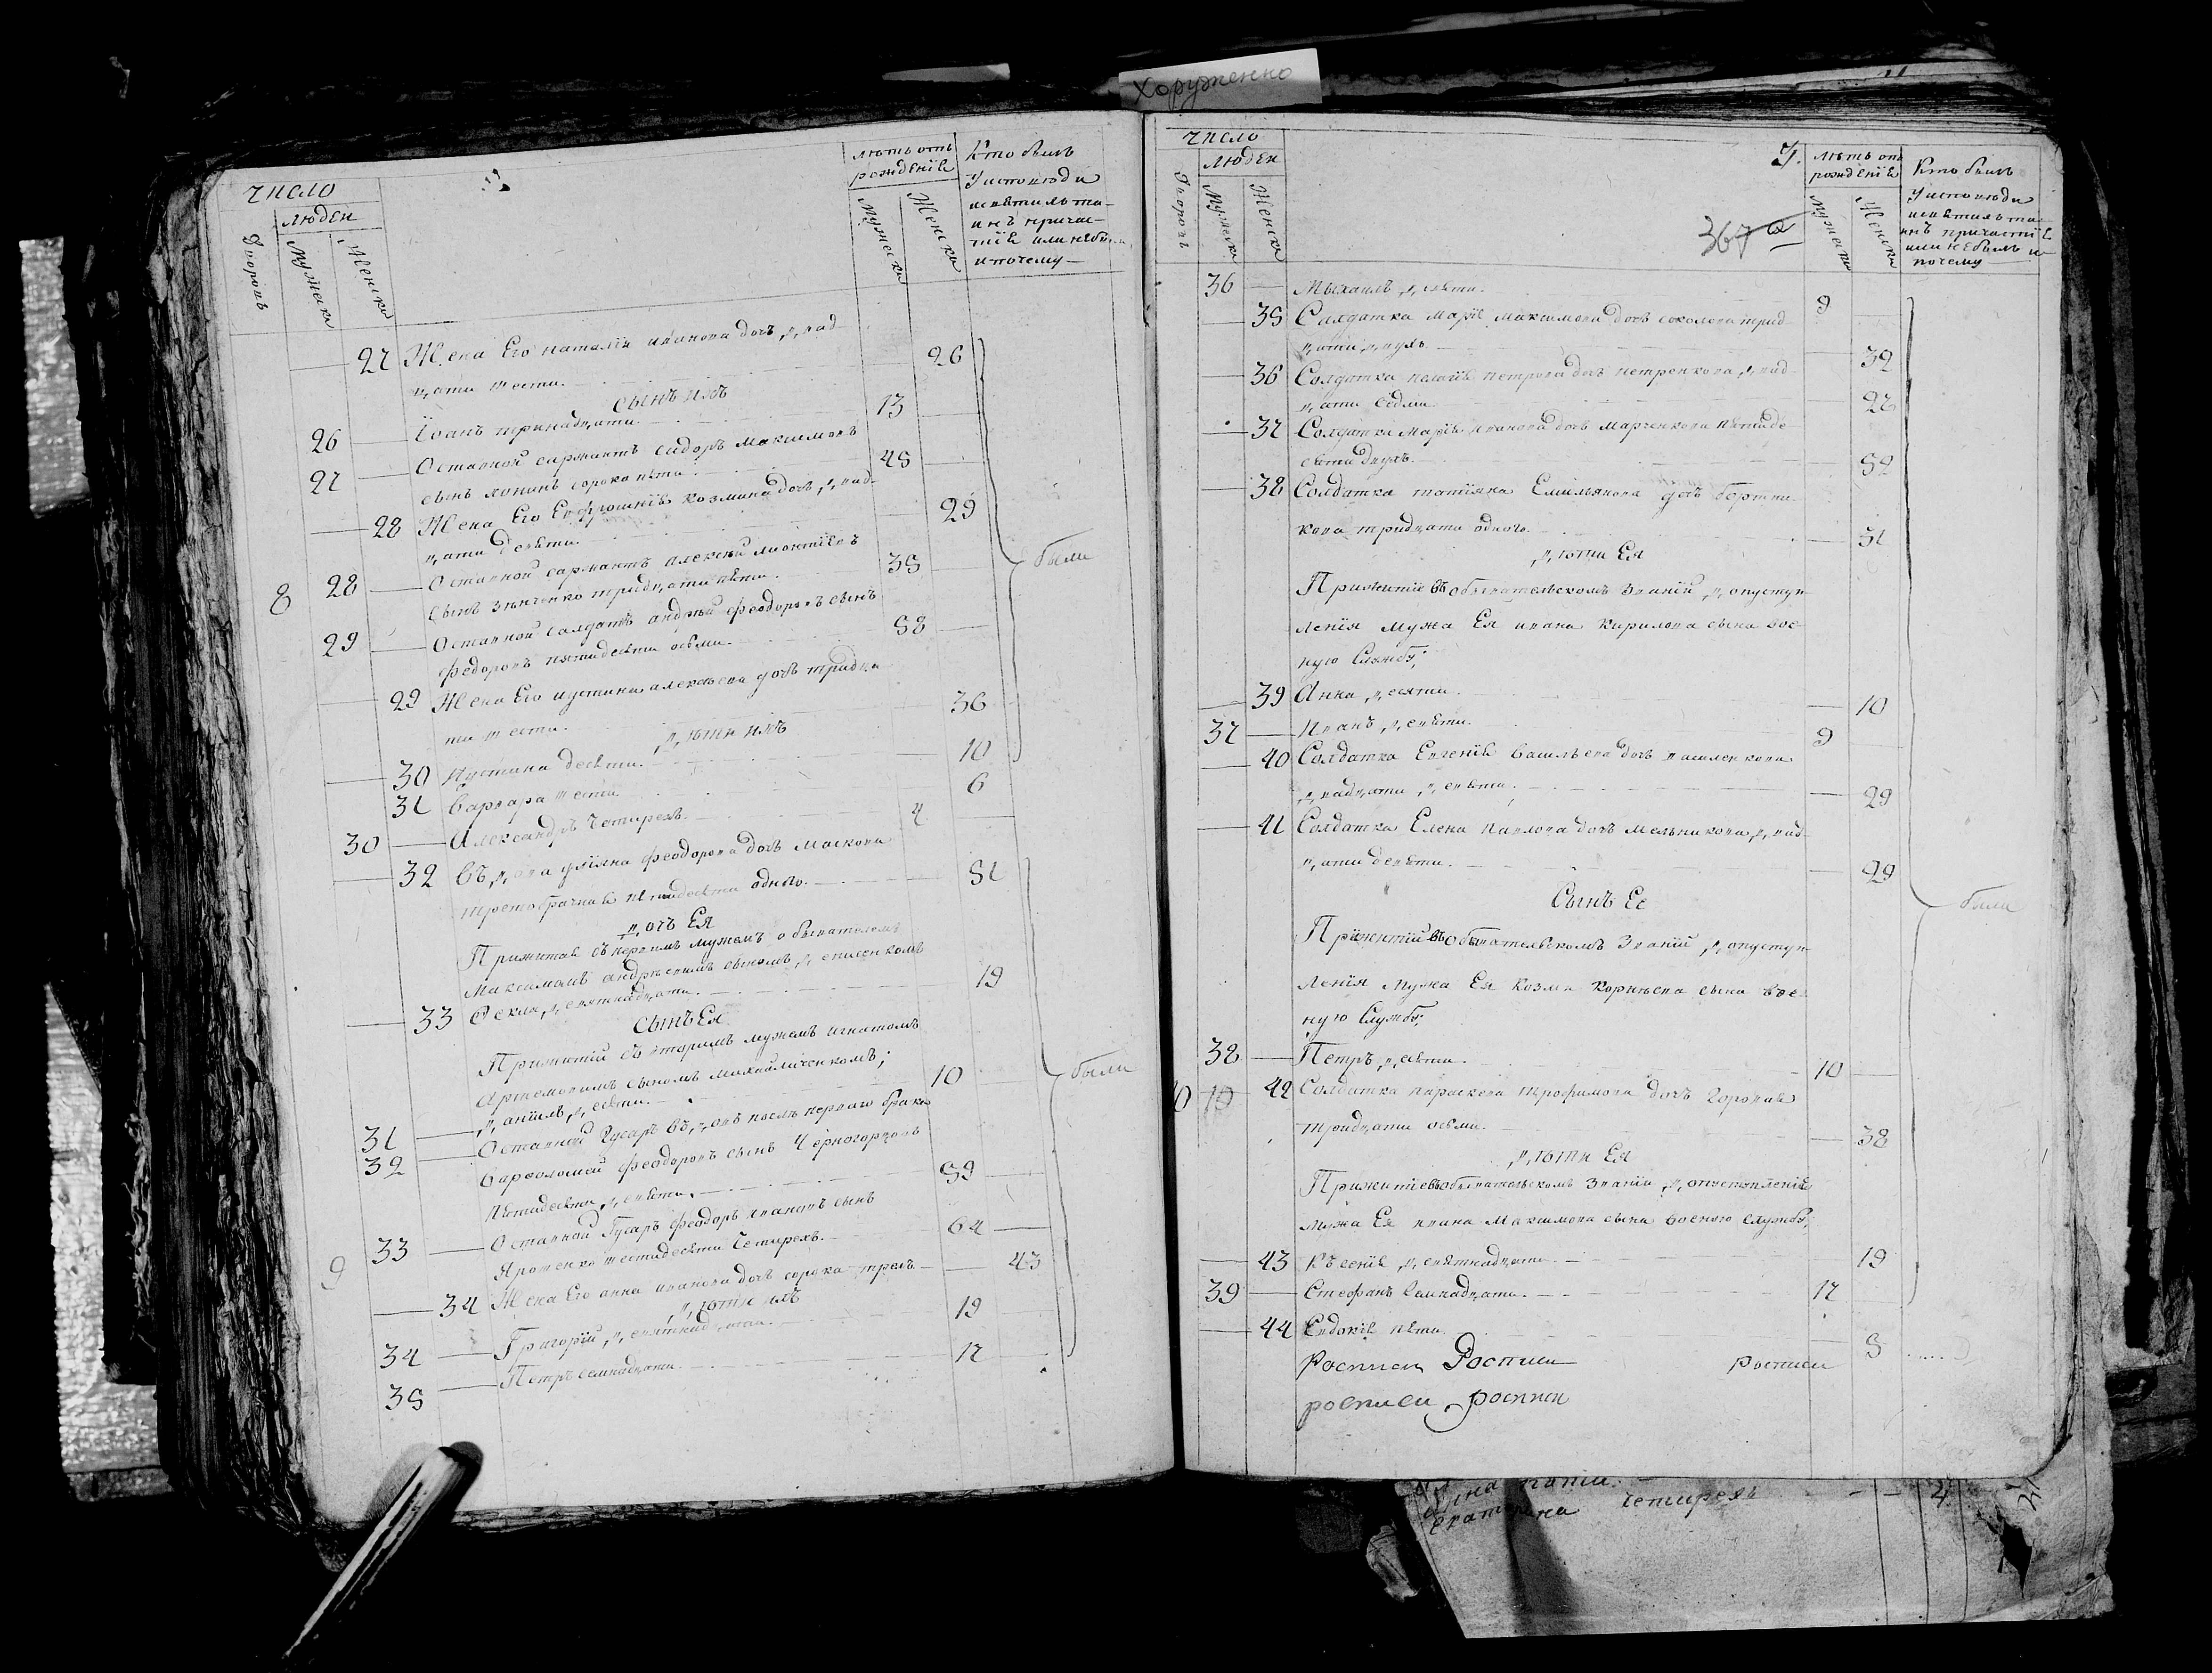 Хоруженко
число
людеи
Дворовъ
Мужеска
Женска
лѣтъ отъ
рожденія
Мужеска
Женска
Кто былъ
У исповѣди
и почему
27 Жена Его наталія иванова дочь двад-
цати шести. 26
Сынъ ихъ
26 Іоанъ тринадцати 13
27 Отставной сержантъ сидоръ максимовъ
сынъ сорока пяти 45
28 Жена Его Евфросинія козмина дочь двад-
цати девяти. 29
8 28 Отставной сержантъ алексѣй
сынъ тридцати пяти. 35
29 Отставной салдатъ андрѣй феодоровъ сынъ
федоровъ пятидесяти осьми. 58
29 Жена Его иустина алексѣева дочь тридца
ти шести. 36
дѣти ихъ
30 иустина десяти. 10
31 Варвара шести 6
30 Александръ четирехъ. 4
были
32 Вдова уліяна феодорова дочь
третобрачная пятидесяти одного. 51
дочь Ея
Прижитая съ первимъ мужемъ обывателемъ
Максимомъ андрѣевимъ сыномъ
33 Фекла девятнадцати. 19
Сынъ Ея
Прижитій съ вторимъ мужемъ игнатомъ
Артемовимъ сыномъ михайличенкомъ;
31 Даніилъ десяти. 10
32 Отставной Гусаръ вдовъ послѣ перваго брака
Варфоломей феодоровъ сынъ Черногорцовъ
Пятидесяти девяти. 59
9 33 Отставной Гусаръ феодоръ ивановъ сынъ
Яроменко шестидесяти четирехъ. 64
34 Жена Его анна иванова дочь сорока трехъ 43
дѣти ихъ
34 Григорій девятнадцати. 19
35 Петръ семнадцати. 17
были
число
людеи
Дворовъ
Мужеска
Женска
3.
367
лѣтъ отъ
рожденія
Мужеска
Женска
Кто былъ
У исповѣди
и святыхъ та-
инъ причастія
или небылъ и
почему
36 Михаилъ девяти. 9
35 Салдатка марія максимова дочь соколова трид
цати двухъ. 32
36 Солдатка петрова дочь петренкова двад
цати седми. 27
37 Солдатка марія иванова дочь марченкова пятиде
сяти двухъ. 52
38 Солдатка татіяна Емильянова дочь бортни
кова тридцати одного. 31
дѣти Ея
Прижитіе въ обывательскомъ званіи до вступ
ленія мужа Ея ивана кирилова сына вое
ную Службу;
39 Анна десяти. 10
37 Иванъ девяти. 9
40 Солдатка Евгенія васильева дочь василенкова
двадцати девяти. 29
41 Солдатка Елена павлова дочь мельникова двад
цати девяти. 29
Сынъ Ее
Прижитій въ обывательскомъ званіи до вступ
ленія мужа Ея козми корнѣева сына вое
ную Службу;
38 Петръ десяти. 10
10 42 Солдатка параскева трофимова дочь
тридцати осьми. 38
дѣти Ея
Прижитіе въ обывательскомъ званіи до вступленія
мужа Ея ивана максимова сына воєную службу;
43 Ксенія девятнадцати. 19
39 Стефанъ семнадцати. 17
44 Евдокія пяти. 5
были
Росписи Росписи росписи
росписи росписи
четирехъ 4